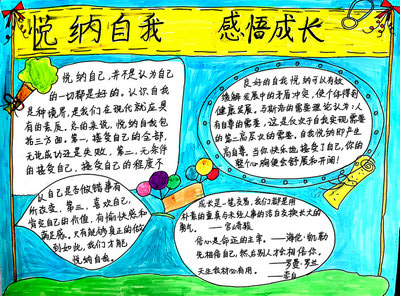 悦纳自我 感悟成长
悦纳自己,并不是认为自己
的一切都是好的。认识自我
是种境界,是我们在现代就应具
有的素质。总的来说,悦纳自我包
括三方面。第一,接受自己的全部,
无论成功还是失败,第二,无条件
的接受自己,接受自己的程度不
以自己是否做错事有
所改变,第三,喜欢自己,
肯定自己的价值,有愉快感和
满足感。只有能够真正的做
到如此,我们才能
悦纳自我。
良好的自我悦纳可以有效
缓解发展中的矛盾冲突,使个体得到
健康发展。马斯洛的需要理论认为:人
有自尊的需要,这是仅次于自我实现需要
的第二高层次的需要。自我悦纳即产生
高自尊。当你快乐地接受了自己,你的
整个心胸便会舒展和开阔!
成长是一笔交易,我们都是用
朴素的童真与未经人事的洁白交换长大的
勇气。 ——宫崎骏
信心是命运的主宰。——海伦·凯勒
先相信自己,然后别人才会相信你。
——罗曼·罗兰
天生我材必有用。 ——李白